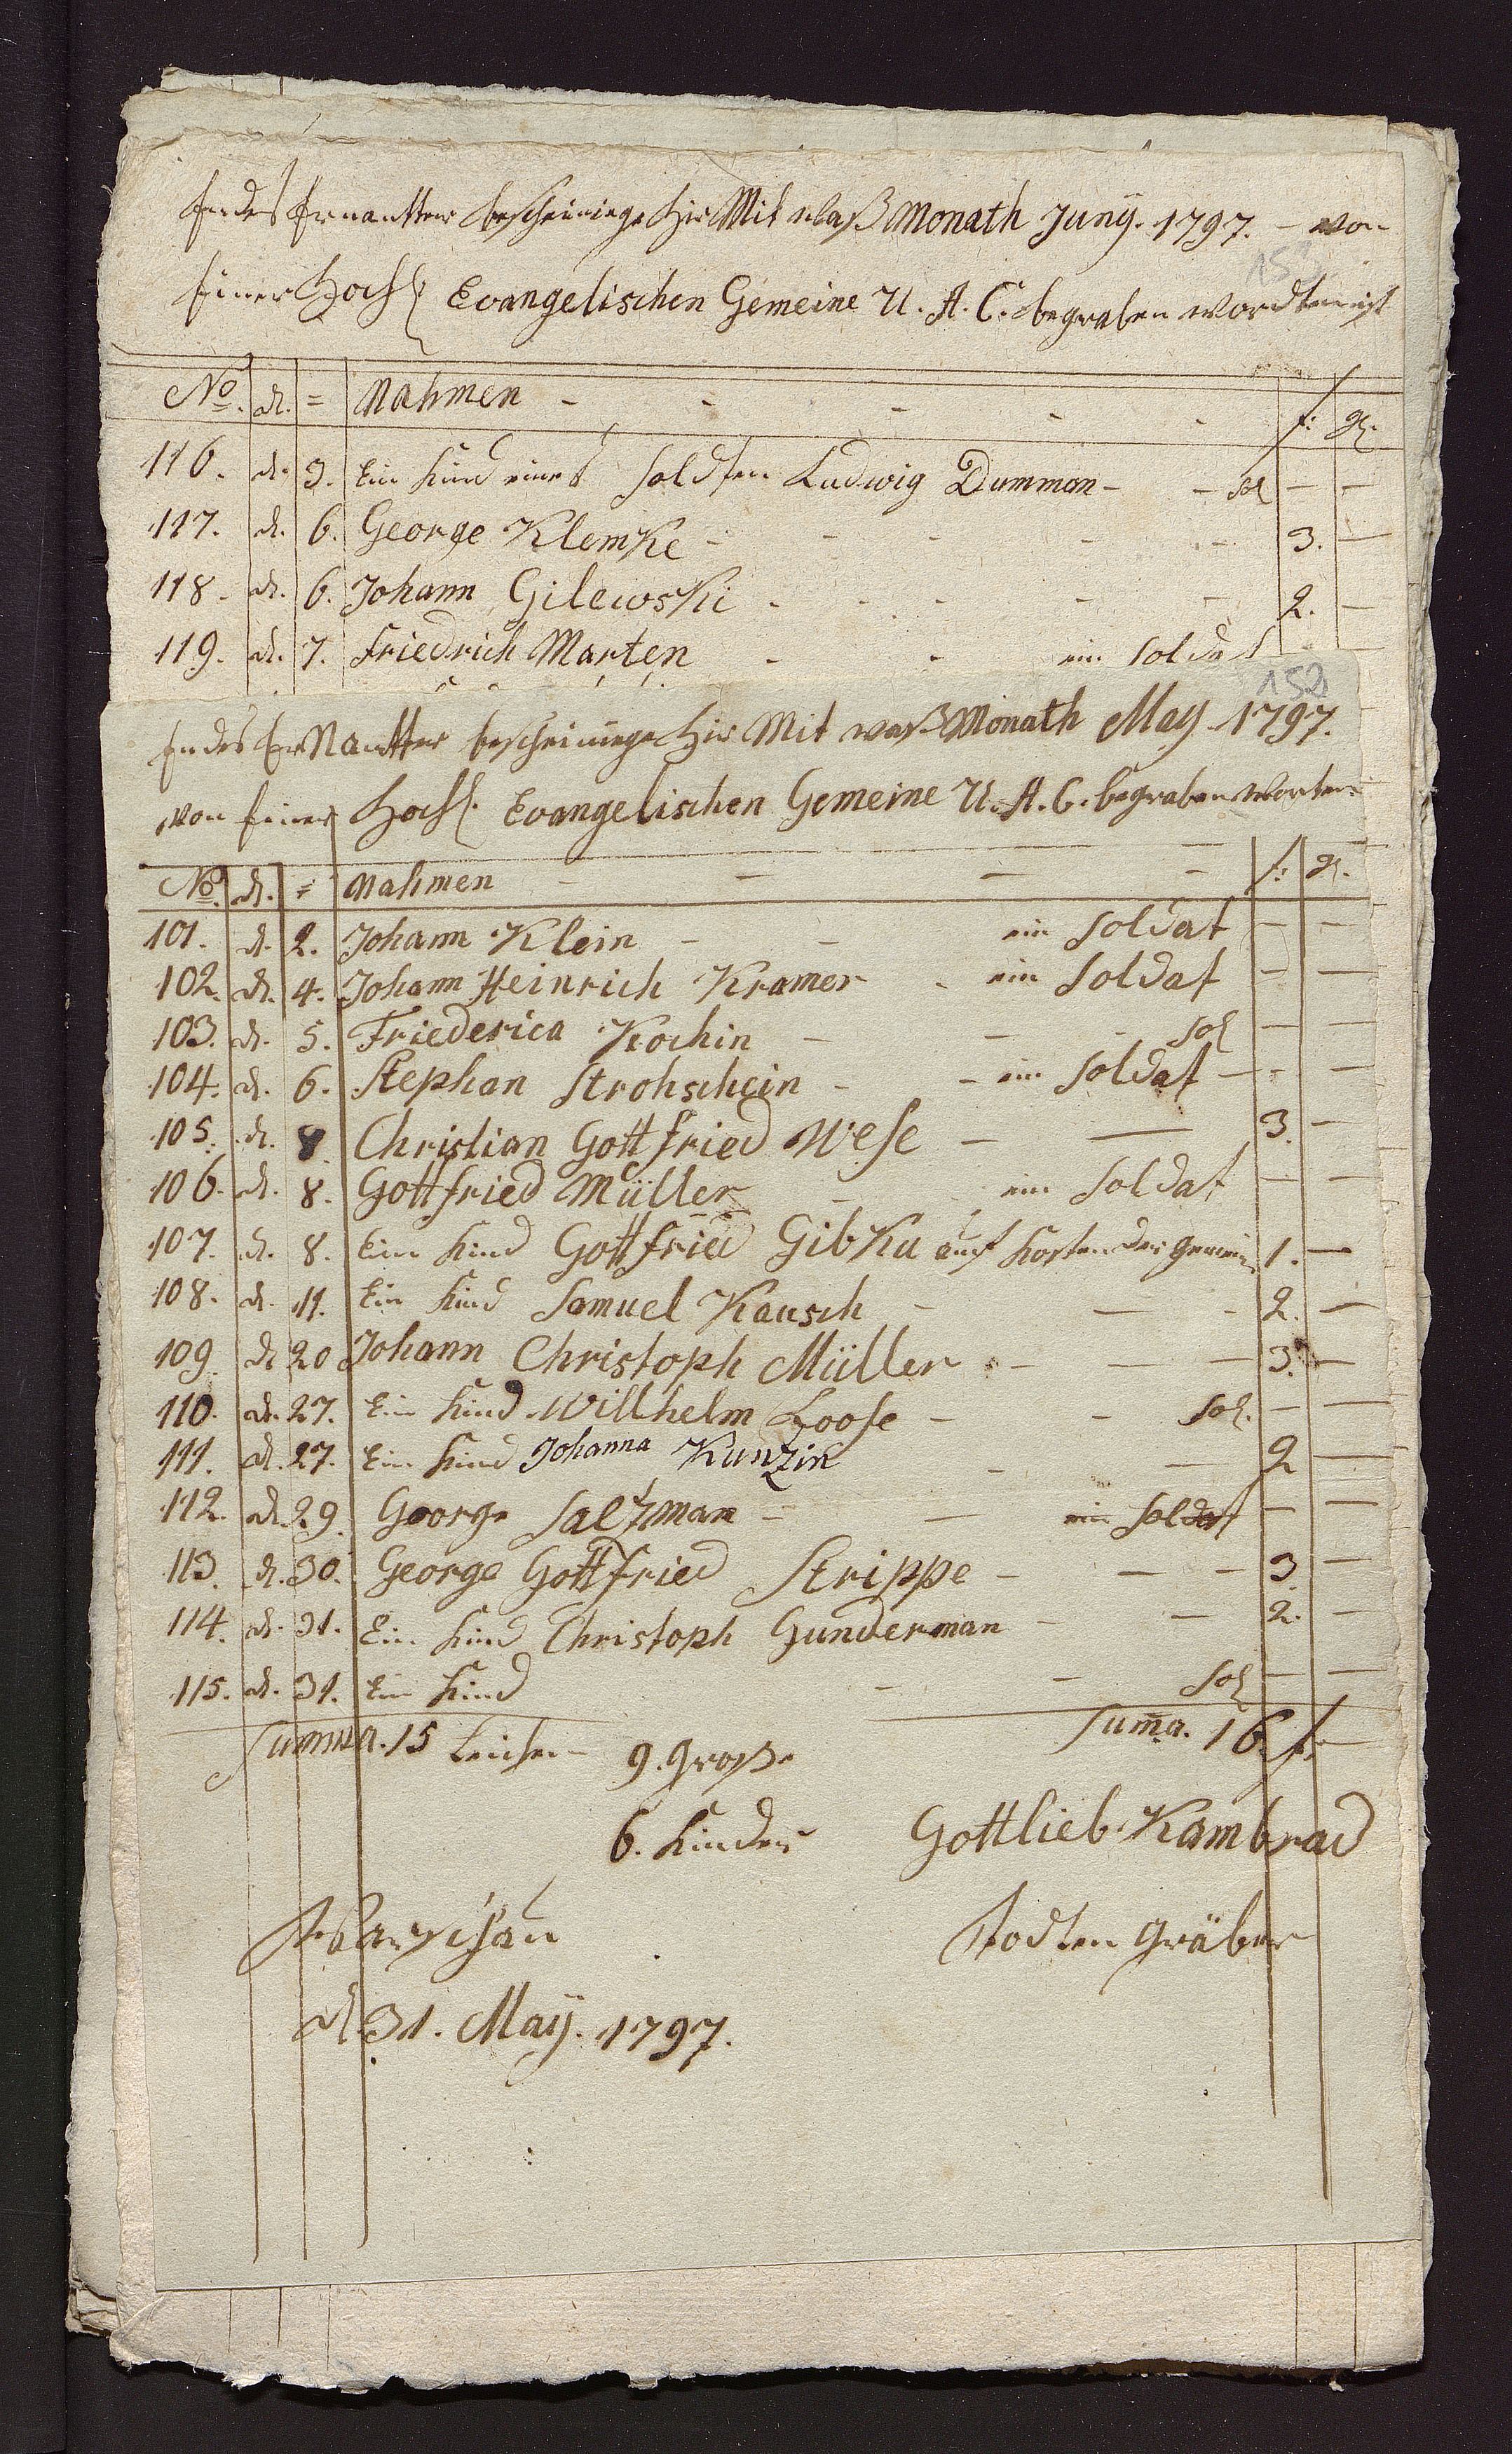 Endes Ernantter bescheinige hir Mit waß Monath Juny. 1797. - von
Einer Hochl Evangelischen Gemeine U. A. C. begraben wordten ist
153
No. d. = Nahmen - - - - - f: g.
116. d. 3. Ein Kind eines Soldten Ludwig Dumman - - Sol - -
117. d. 6. George Klemke - - - - - 3. -
118. d. 6. Johann Gilewski - - - - 2. -
119. d. 7. Friedrich Marten - - ein Soldat
152
Endes Ernantter bescheinige hir Mit waß Monath May 1797.
von Einer Hochl. Evangelischen Gemeine U. A. C. begraben worten
No. d. = Nahmen - - - - f: g.
101. d. 2. Johann Klein - - ein Soldat - -
102. d. 4. Johann Heinrich Kramer - ein Soldat - -
103. d. 5. Friederica Kochin - - - Sol - -
104. d. 6. Stephan Strohschein - - ein Soldat - - -
105. d. 8. Christian Gottfried Wese - - 3. -
106. d. 8. Gottfried Müller - - ein Soldat - -
107. d. 8. Ein Kind Gottfried Gibka auf Kosten der Gemein. 1. -
108. d. 11. Ein Kind Samuel Kausch - - - 2. -
109. d. 20 Johann Christoph Müller - - - 3. -
110. d. 27. Ein Kind Willhelm Loose - - Sol. - -
111. d. 27. Ein Kind Johanna Kunzin - - 2 -
112. d. 29. George Saltzman - - ein Soldat - -
113. d. 30. George Gottfried Strippe - - - 3. -
114. d. 31. Ein Kind Christoph Gunderman - - 2. -
115. d. 31. Ein Kind - - Sol - -
Summa. 15 Leichen 9. Große Suma. 16. f. -
6. Kinder Gottlieb Kambrad
Warschau Todten Gräber
d. 31. May. 1797.